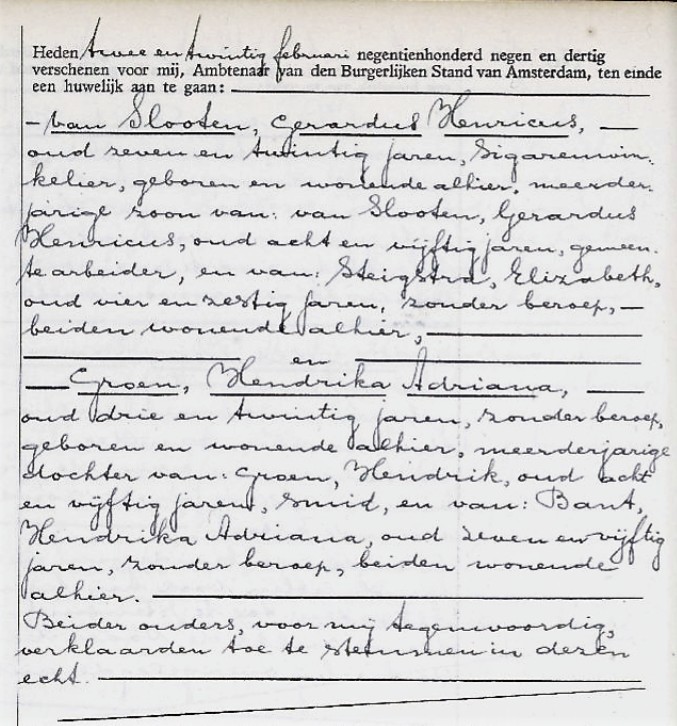 Heden twee en twintig februari negentienhonderd negen en dertig
verschenen voor mij, Ambtenaar van den Burgerlijken Stand van Amsterdam, ten einde
een huwelijk aan te gaan:
- van Slooten, Gerardus Henricus, -
oud zeven en twintig jaren, Sigarenwin-
kelier, geboren en wonende alhier, meerder-
jarige zoon van: van Slooten, Gerardus
Henricus, oud acht en vijftig jaren, gemeen-
te arbeider, en van: Steigstra, Elizabeth,
oud vier en zestig jaren, zonder beroep, -
beiden wonende alhier,
en
- Groen, Hendrika Adriana, -
oud drie en twintig jaren, zonder beroep,
geboren en wonende alhier, meerderjarige
dochter van: Groen, Hendrik, oud acht
en vijftig jaren, smid, en van: Bant,
Hendrika Adriana, oud zeven en vijftig
jaren, zonder beroep, beiden wonende
alhier.
Beider ouders, voor mij tegenwoordig,
verklaarden toe te stemmen in dezen
echt.